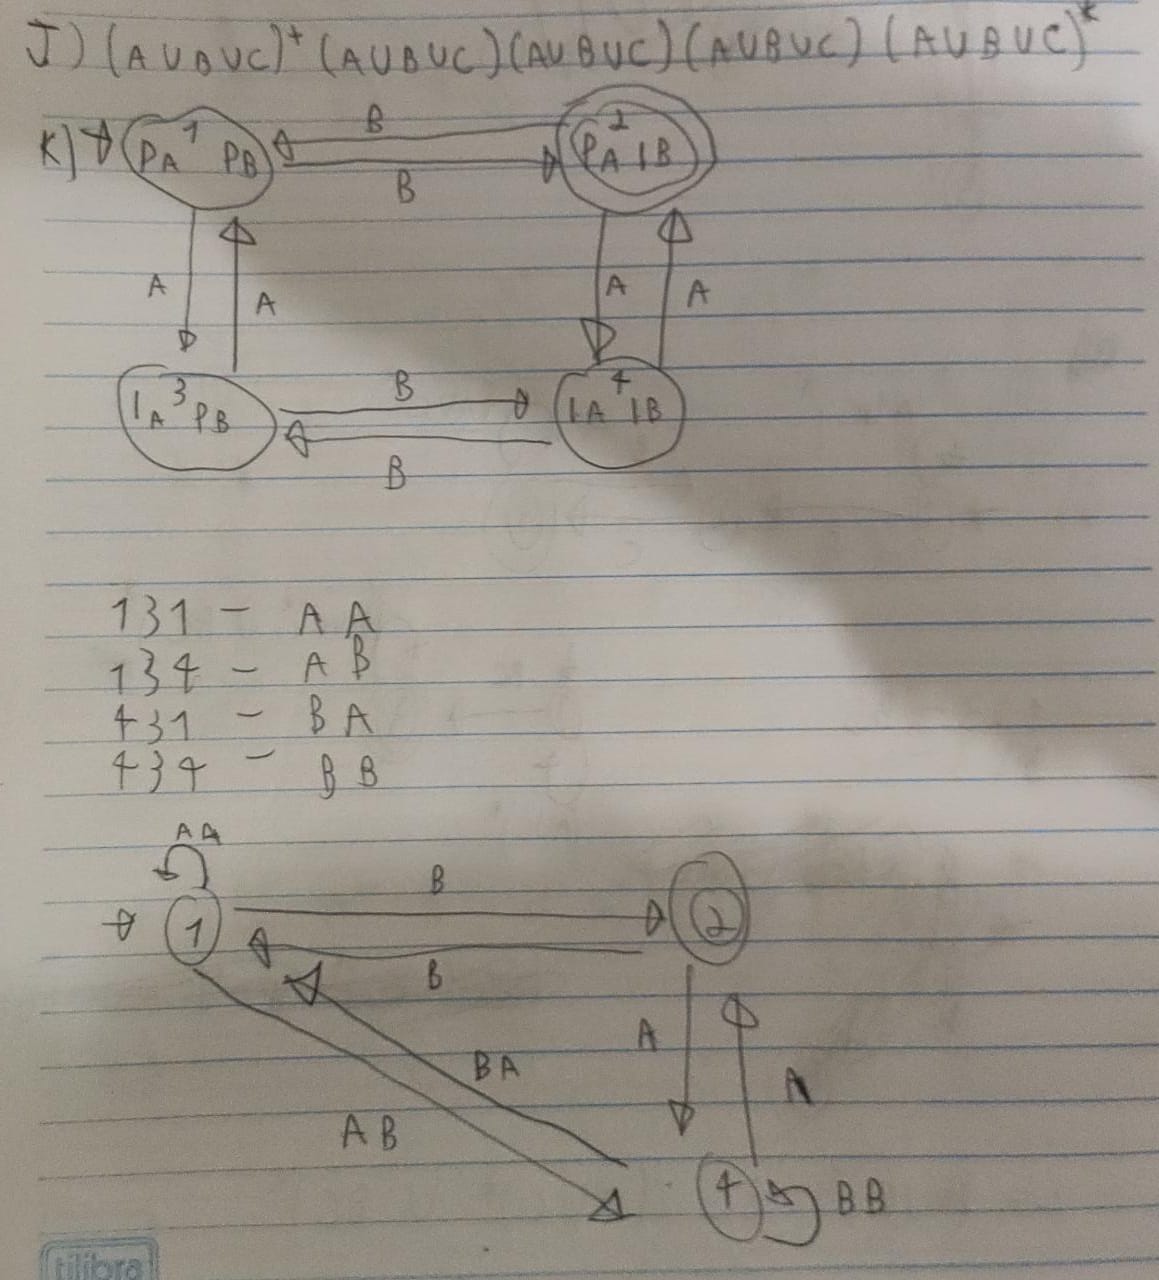 J) (AUBUC)⁺ (AUBUC)(AUBUC)(AUBUC)(AUBUC)*
K) 1 PA PB B B 2 PA IB
A A A A
3 IA PB B B 4 IA IB
131 - AA
134 - AB
431 - BA
434 - BB
AA
1 B B 2
BA A A
AB
4 BB
tilibra